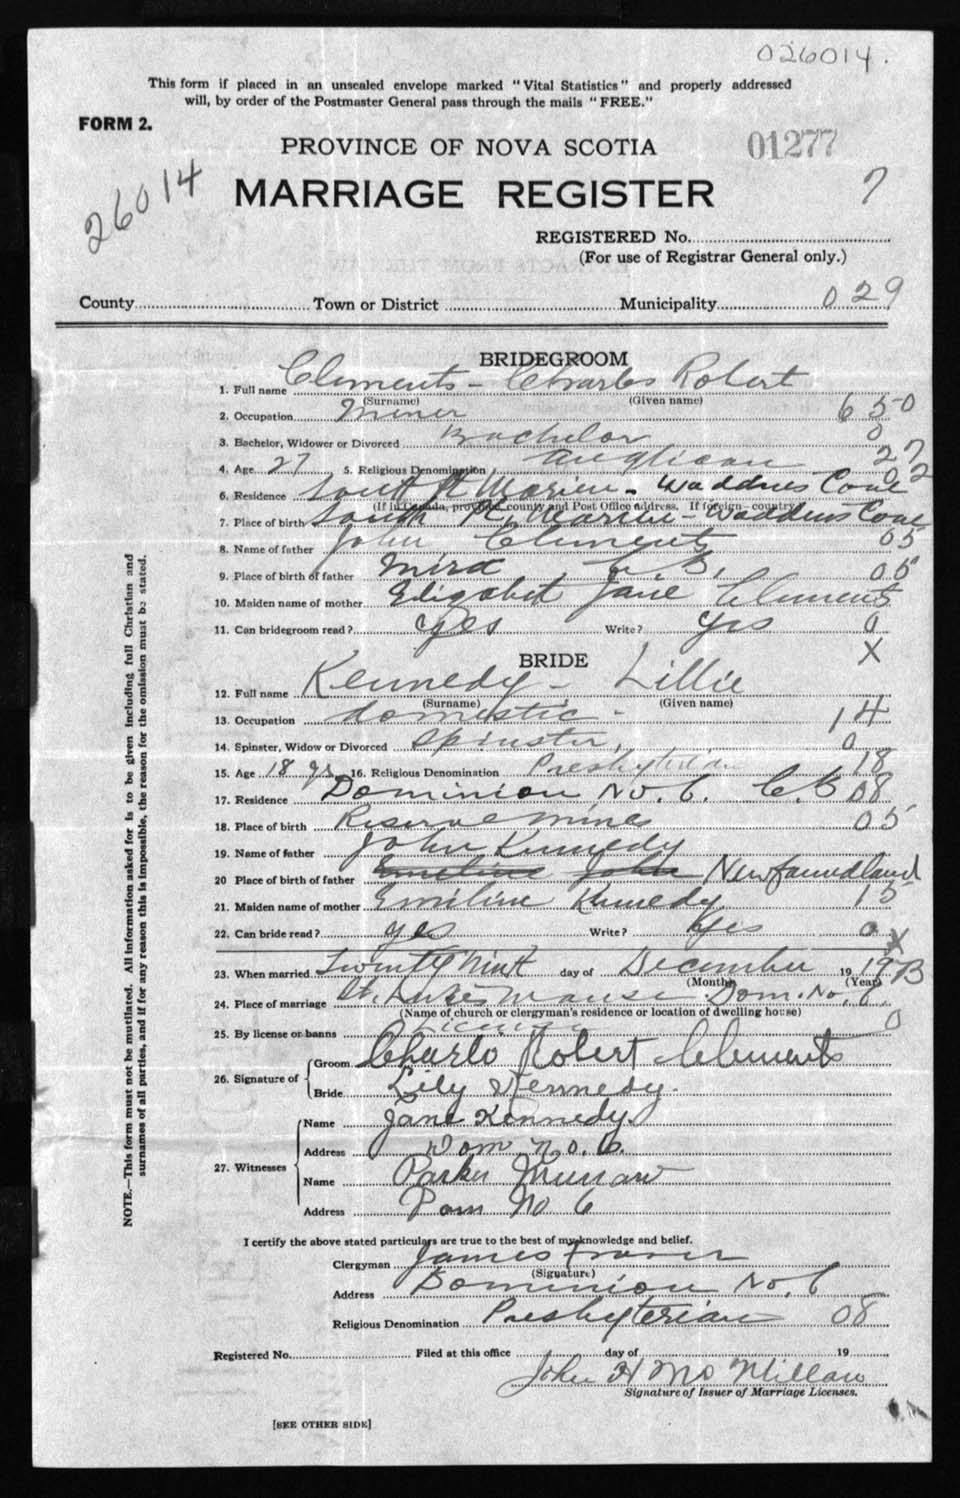 026014.
This form if placed in an unsealed envelope marked "Vital Statistics" and properly addressed
will, by order of the Postmaster General pass through the mails "FREE."
FORM 2.
PROVINCE OF NOVA SCOTIA
01277
26014
MARRIAGE REGISTER
7
REGISTERED No.
(For use of Registrar General only.)
County Town or District Municipality 029
BRIDEGROOM
1. Full name Clements - Charles Robert
(Surname) (Given name)
2. Occupation Miner 650
3. Bachelor, Widower or Divorced Bachelor 0
4. Age 27 5. Religious Denomination Anglican 27
02
6. Residence South Waddens Cove
(If in Canada, province, county and Post Office address. If foreign—country)
7. Place of birth South Waddens Cove
8. Name of father John Clements 05
9. Place of birth of father Mira C. B. 05
10. Maiden name of mother Elizabet Jane Clements
11. Can bridegroom read? Yes Write? Yes 0
X
BRIDE
12. Full name Kennedy - Lillie
(Surname) (Given name)
13. Occupation domestic - 14
14. Spinster, Widow or Divorced Spinster, 0
15. Age 18 yrs 16. Religious Denomination Presbyterian 18
17. Residence Dominion No. 6. C.B 08
18. Place of birth Reserve Mines 05
19. Name of father John Kennedy
20 Place of birth of father Emeline John Newfoundland
21. Maiden name of mother Emiline Kennedy 15
22. Can bride read? yes Write? Yes 0
X
23. When married Twenty Nint day of December 19
(Month) (Year)
24. Place of marriage St. Lukes Manse Dom. No. 6
(Name of church or clergyman's residence or location of dwelling house)
25. By license or banns License 0
26. Signature of Groom Charls Robert Clements
Bride Lily Kennedy.
27. Witnesses
Name Jane Kennedy
Address Dom No. 6.
Name Parker
Address Dom No 6
I certify the above stated particulars are true to the best of my knowledge and belief.
Clergyman James Fraser
(Signature)
Address Dominion No. 6
Religious Denomination Presbyterian 08
Registered No. Filed at this office day of 19
John H McMillan
Signature of Issuer of Marriage Licenses.
[SEE OTHER SIDE]
NOTE.—This form must not be mutilated. All information asked for is to be given including full Christian and
surnames of all parties, and if for any reason this is impossible, the reason for the omission must be stated.